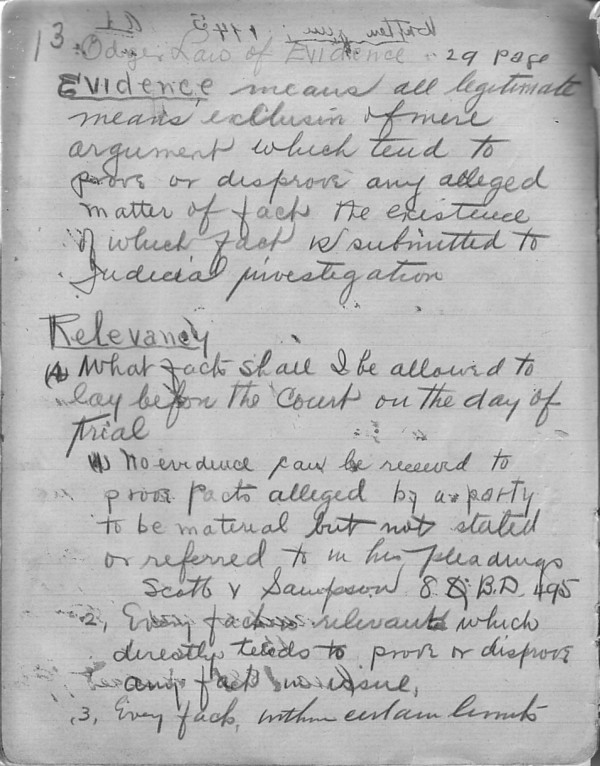 13
Odger Law of Evidence - 29 page
Evidence means all legitimate
means exclusin of mere
argument which tend to
prove or disprove any alleged
matter of fact the existence
of which fact is submitted to
Judicial investigation
Relevancy
(A) What facts shall I be allowed to
lay before the Court on the day of
trial
(1) No evidence can be received to
prove facts alleged by a party
to be material but not stated
or referred to in his pleadings
Scott v Sampson 8 Q.B.D. 495
2, Every fact is relevant which
directly tends to prove or disprove
any fact in issue,
3, Every fact, within certain limits